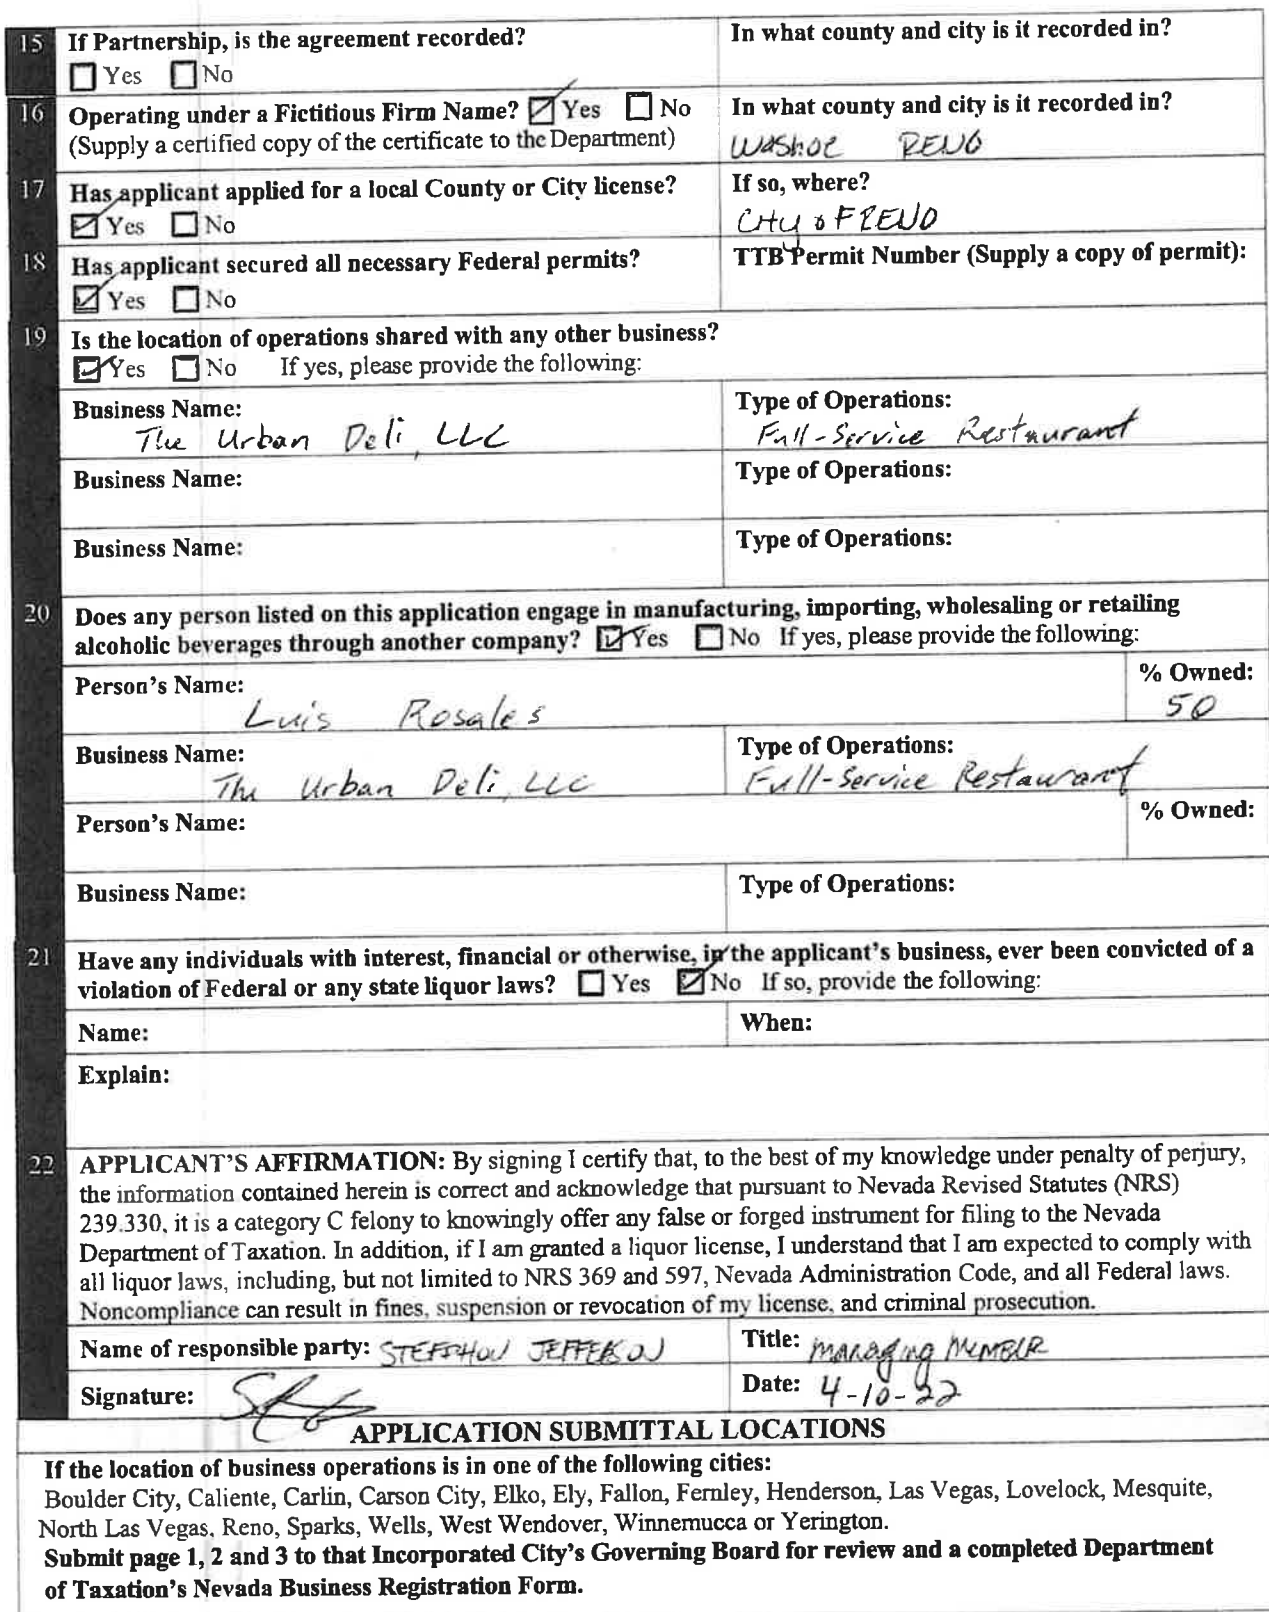 15 If Partnership, is the agreement recorded? In what county and city is it recorded in?
☐ Yes ☐ No
16 Operating under a Fictitious Firm Name? ☑ Yes ☐ No In what county and city is it recorded in?
(Supply a certified copy of the certificate to the Department) Washoe RENO
17 Has applicant applied for a local County or City license? If so, where?
☑ Yes ☐ No City oF RENO
18 Has applicant secured all necessary Federal permits? TTB Permit Number (Supply a copy of permit):
☑ Yes ☐ No
19 Is the location of operations shared with any other business?
☑ Yes ☐ No If yes, please provide the following:
Business Name: Type of Operations:
The Urban Deli, LLC Full-Service Restaurant
Business Name: Type of Operations:
Business Name: Type of Operations:
20 Does any person listed on this application engage in manufacturing, importing, wholesaling or retailing
alcoholic beverages through another company? ☑ Yes ☐ No If yes, please provide the following:
Person's Name: % Owned:
Luis Rosales 50
Business Name: Type of Operations:
The Urban Deli, LLC Full-Service Restaurant
Person's Name: % Owned:
Business Name: Type of Operations:
21 Have any individuals with interest, financial or otherwise, in the applicant's business, ever been convicted of a
violation of Federal or any state liquor laws? ☐ Yes ☑ No If so, provide the following:
Name: When:
Explain:
22 APPLICANT'S AFFIRMATION: By signing I certify that, to the best of my knowledge under penalty of perjury,
the information contained herein is correct and acknowledge that pursuant to Nevada Revised Statutes (NRS)
239.330, it is a category C felony to knowingly offer any false or forged instrument for filing to the Nevada
Department of Taxation. In addition, if I am granted a liquor license, I understand that I am expected to comply with
all liquor laws, including, but not limited to NRS 369 and 597, Nevada Administration Code, and all Federal laws.
Noncompliance can result in fines, suspension or revocation of my license, and criminal prosecution.
Name of responsible party: STEFPHON JEFFERSON Title: Managing Member
Signature: Date: 4-10-22
APPLICATION SUBMITTAL LOCATIONS
If the location of business operations is in one of the following cities:
Boulder City, Caliente, Carlin, Carson City, Elko, Ely, Fallon, Fernley, Henderson, Las Vegas, Lovelock, Mesquite,
North Las Vegas, Reno, Sparks, Wells, West Wendover, Winnemucca or Yerington.
Submit page 1, 2 and 3 to that Incorporated City's Governing Board for review and a completed Department
of Taxation's Nevada Business Registration Form.